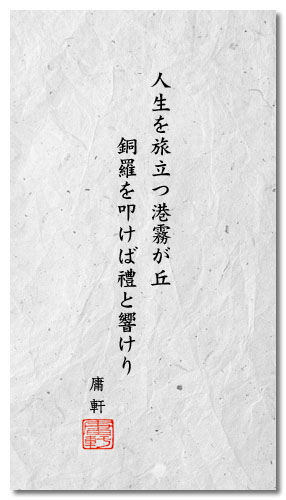 人生を旅立つ港霧が丘
銅羅を叩けば禮と響けり
庸軒